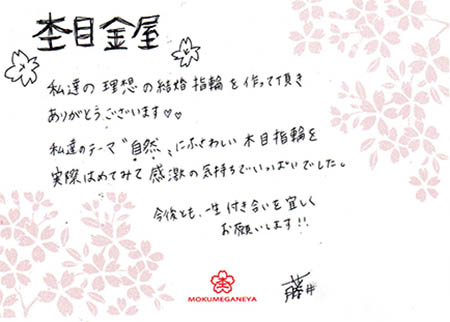 杢目金屋
私達の理想の結婚指輪を作って頂き
ありがとうございます♡♡
私達のテーマ〝自然〟にふさわしい木目指輪を
実際はめてみて感激の気持ちでいっぱいでした。
今後とも、一生付き合いを宜しく
お願いします!!
MOKUMEGANEYA
藤井